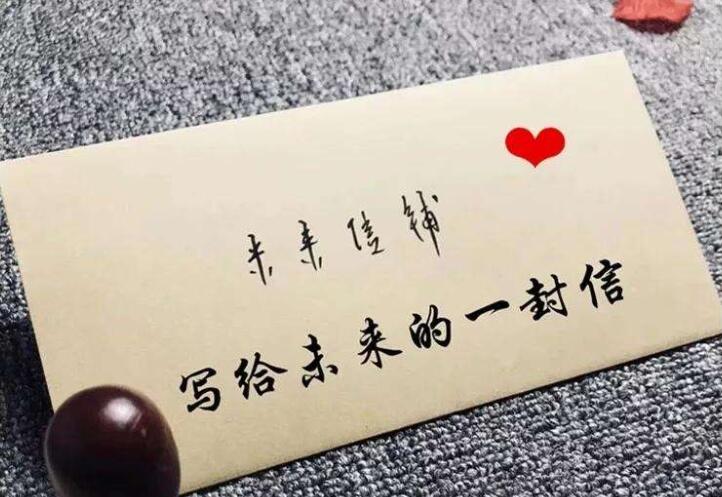 未来信铺
写给未来的一封信